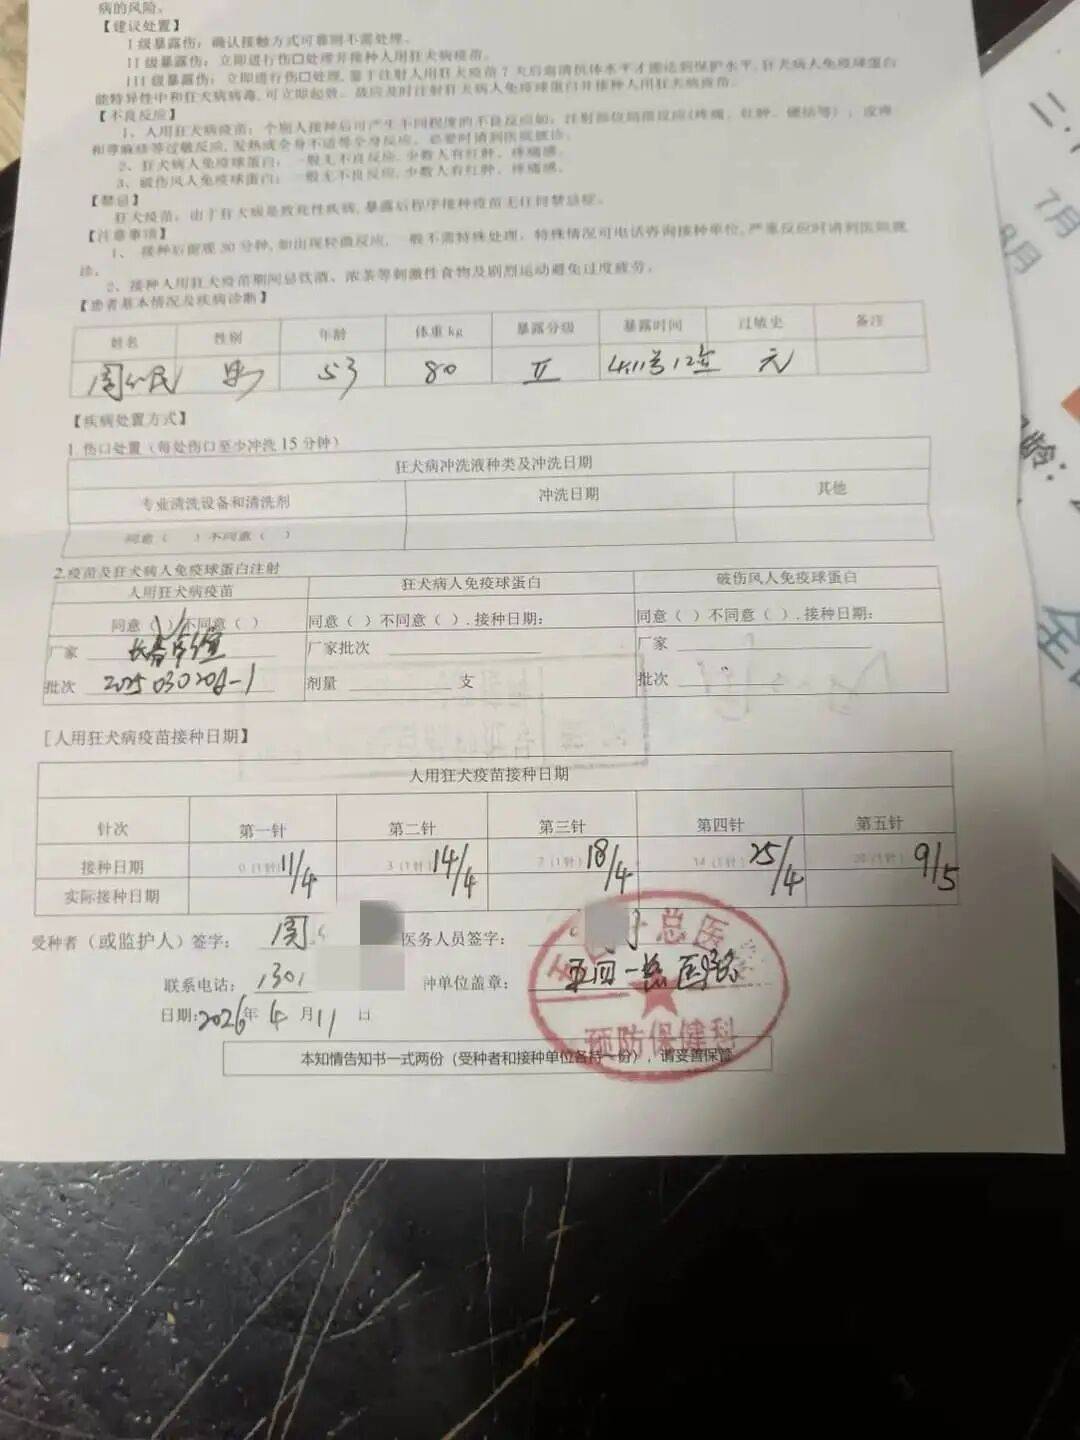 病的风险。
【建议处置】
I级暴露伤：确认接触方式可靠则不需处理。
II级暴露伤：立即进行伤口处理并接种人用狂犬病疫苗。
III级暴露伤：立即进行伤口处理，鉴于注射人用狂犬疫苗7天后血清抗体水平才能达到保护水平，狂犬病人免疫球蛋白
能特异性中和狂犬病病毒，可立即起效。故应及时注射狂犬病人免疫球蛋白并接种人用狂犬病疫苗。
【不良反应】
1、人用狂犬病疫苗：个别人接种后可产生不同程度的不良反应如：注射部位局部反应(疼痛、红肿、硬结等)；皮疹
和荨麻疹等过敏反应，发热或全身不适等全身反应。必要时请到医院就诊。
2、狂犬病人免疫球蛋白：一般无不良反应，少数人有红肿、疼痛感。
3、破伤风人免疫球蛋白：一般无不良反应，少数人有红肿、疼痛感。
【禁忌】
狂犬疫苗：由于狂犬病是致死性疾病，暴露后程序接种疫苗无任何禁忌症。
【注意事项】
1、接种后留观30分钟，如出现轻微反应，一般不需特殊处理。特殊情况可电话咨询接种单位，严重反应时请到医院就
诊。
2、接种人用狂犬疫苗期间忌饮酒、浓茶等刺激性食物及剧烈运动避免过度疲劳。
【患者基本情况及疾病诊断】
姓名 性别 年龄 体重 kg 暴露分级 暴露时间 过敏史 备注
周 民 男 53 80 II 4.11号12点 无
【疾病处置方式】
1. 伤口处置（每处伤口至少冲洗 15 分钟）
狂犬病冲洗液种类及冲洗日期
专业清洗设备和清洗剂 冲洗日期 其他
同意（ ）不同意（ ）
2.疫苗及狂犬病人免疫球蛋白注射
人用狂犬病疫苗 狂犬病人免疫球蛋白 破伤风人免疫球蛋白
同意（√）不同意（ ） 同意（ ）不同意（ ）.接种日期： 同意（ ）不同意（ ）.接种日期：
厂家 长春卓谊 厂家批次 厂家
批次 20250302 -1 剂量 支 批次
[人用狂犬病疫苗接种日期】
人用狂犬疫苗接种日期
针次 第一针 第二针 第三针 第四针 第五针
接种日期 0 (1针) 11/4 3 (1针) 14/4 7 (1针) 18/4 14 (1针) 25/4 28 (1针) 9/5
实际接种日期
受种者（或监护人）签字： 周 医务人员签字：
联系电话： 1301 种单位盖章： 医院
总医
日期:2026年 4 月 11 日
预防保健科
本知情告知书一式两份（受种者和接种单位各持一份），请妥善保管
7月
8月